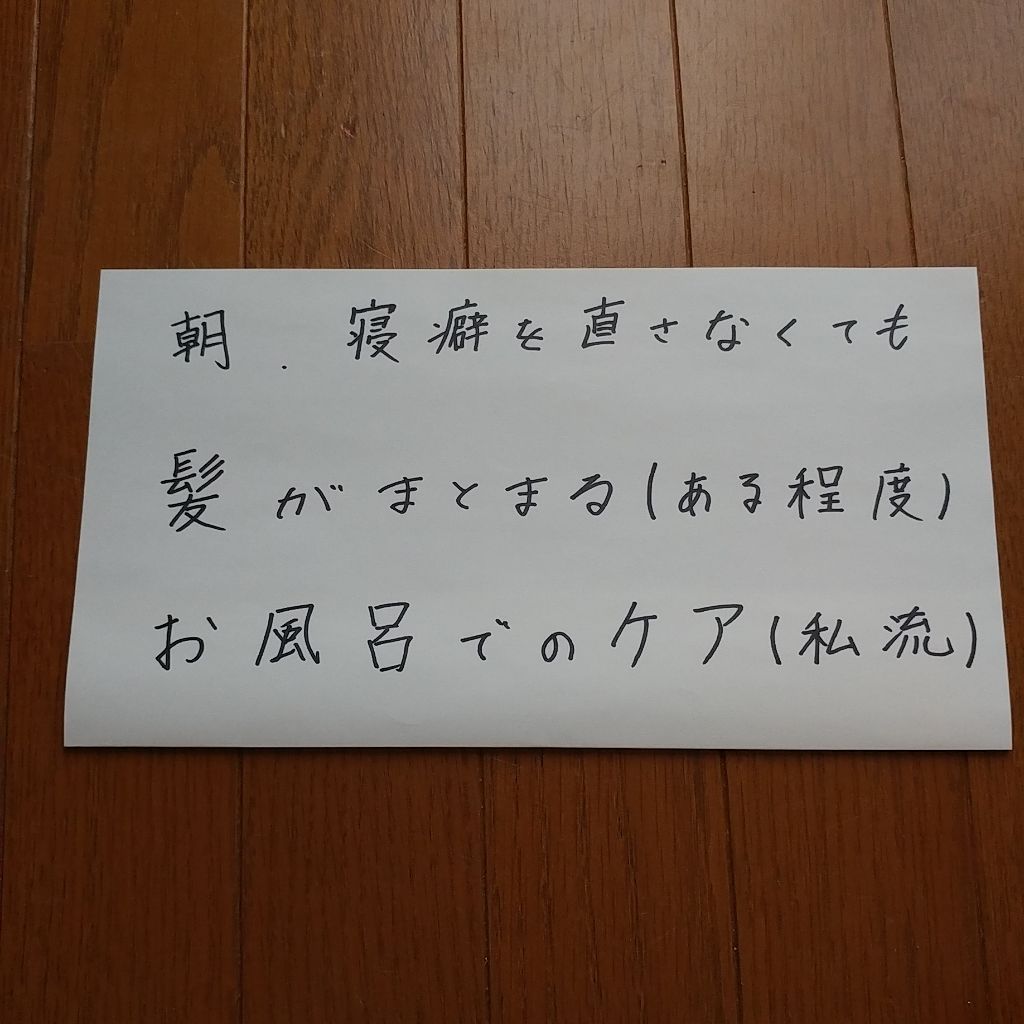 朝、寝癖を直さなくても
髪がまとまる(ある程度)
お風呂でのケア(私流)